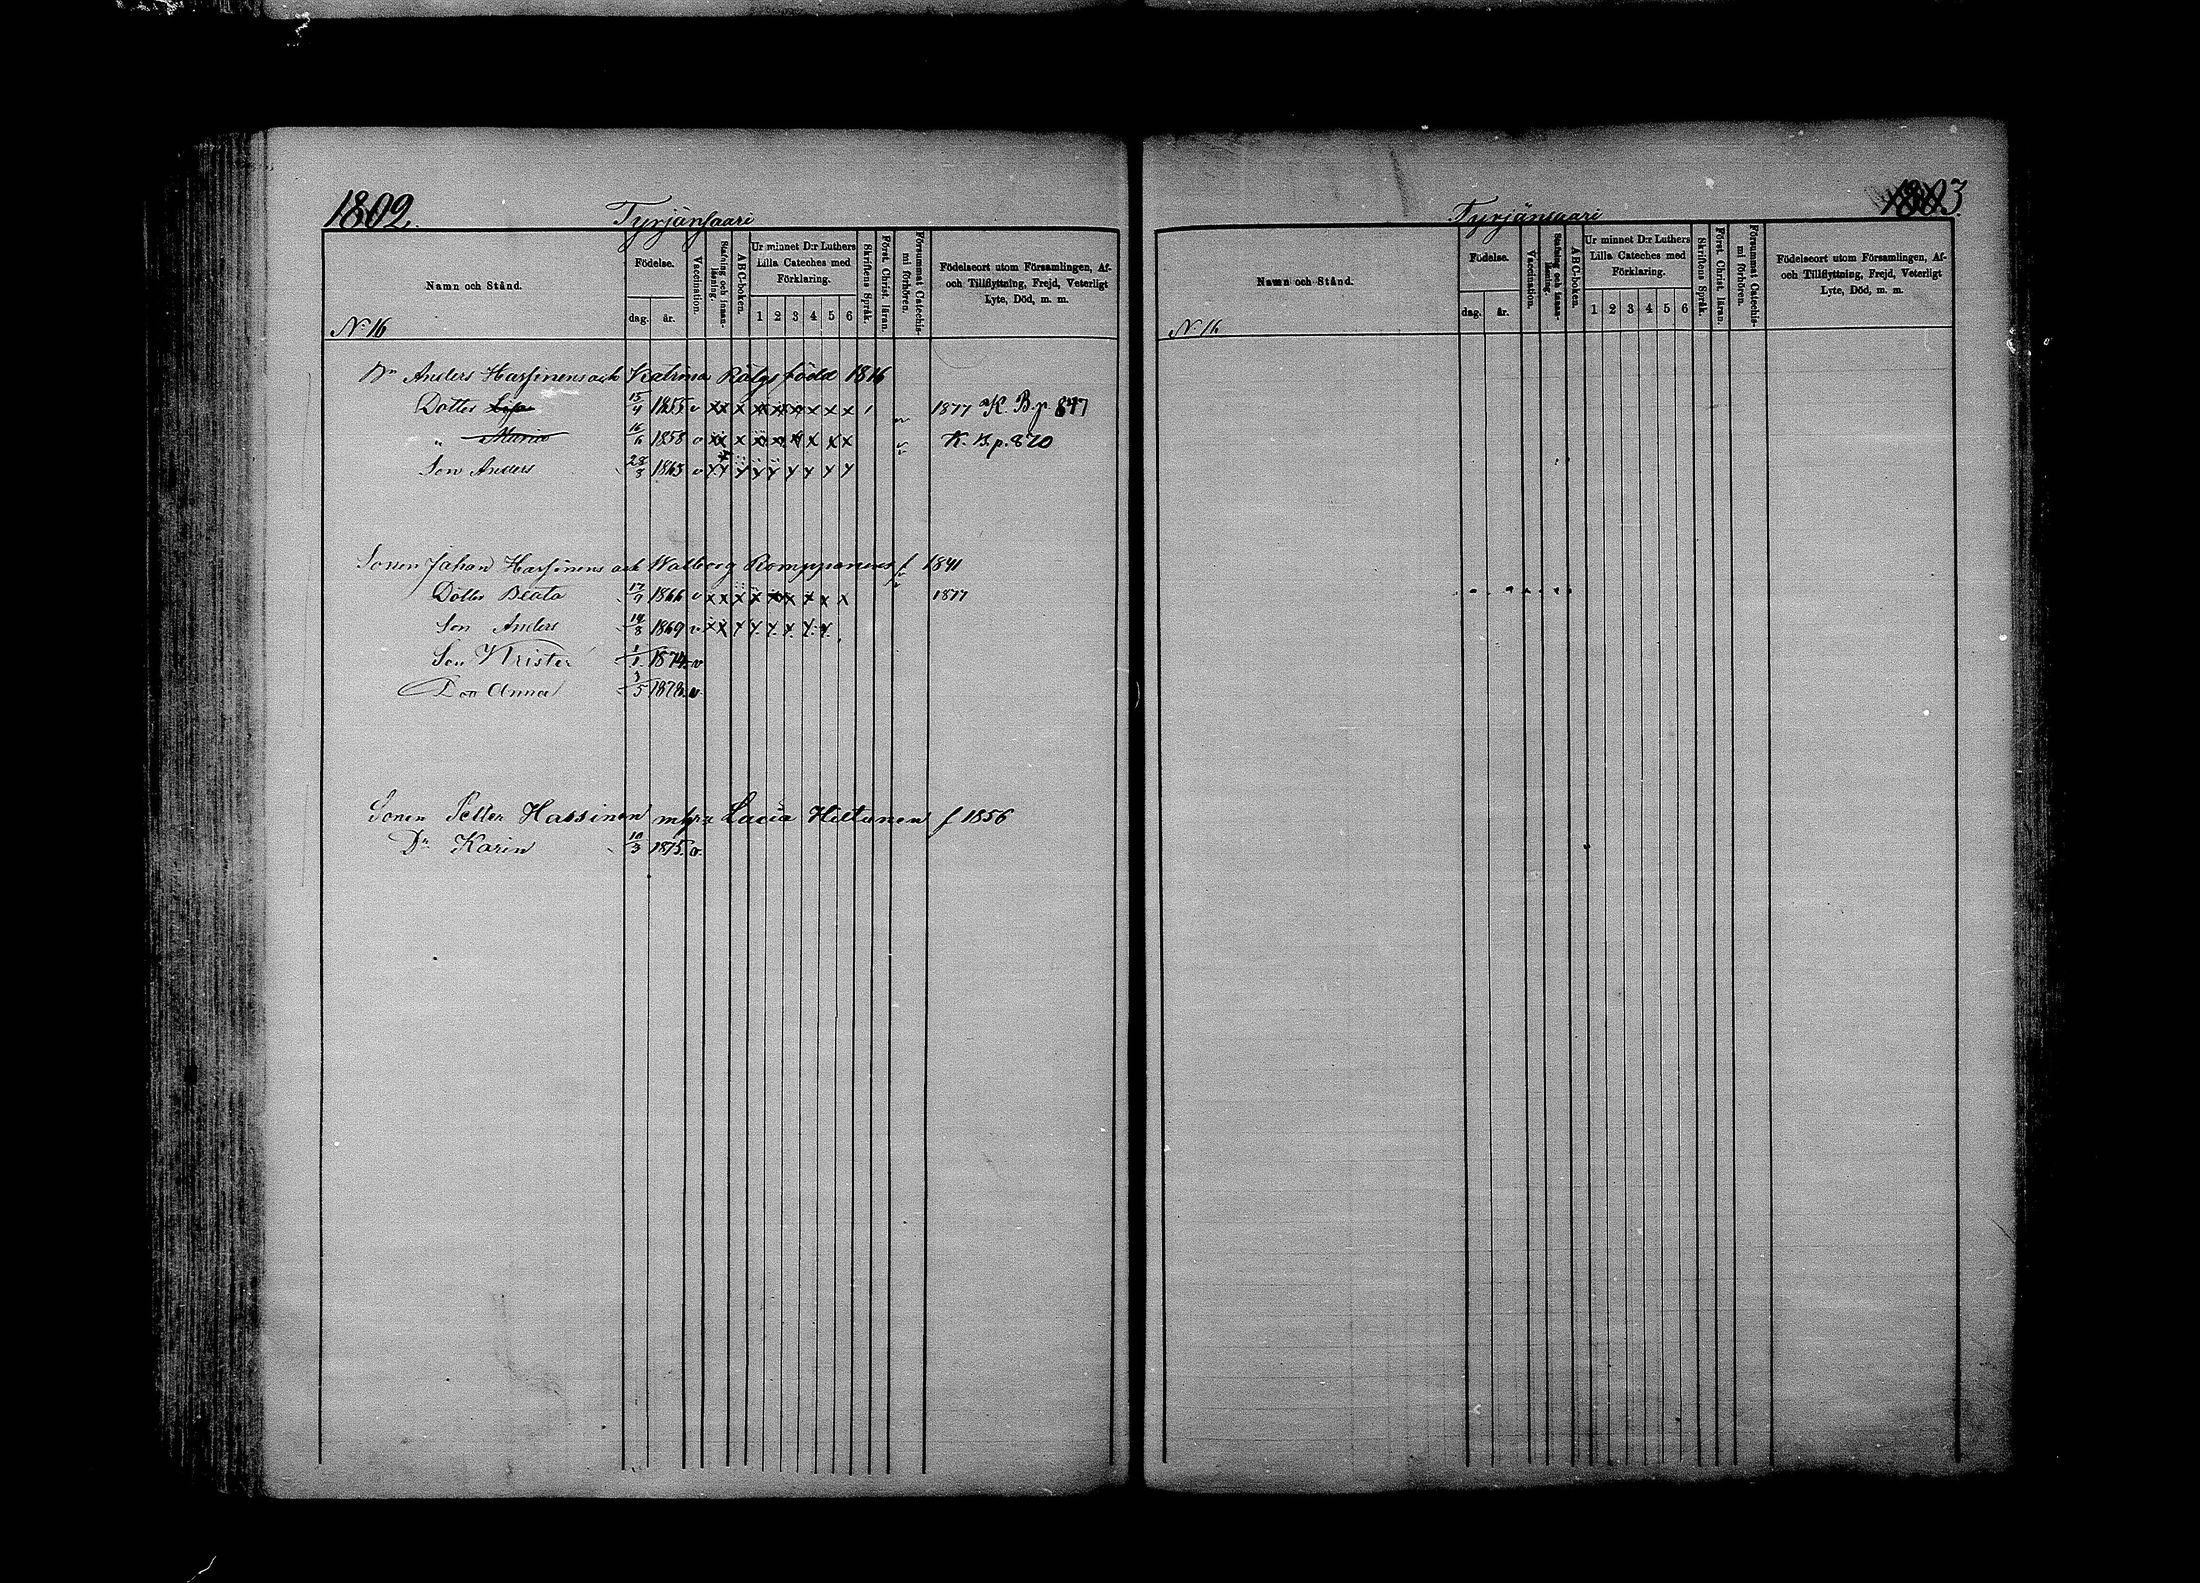 1802.
Tyrjänsaari
Namn och Stånd.
Födelse.
dag. år.
Vaccination.
Stafning och innan-läsning.
ABC-boken.
Ur minnet D:r Luthers
Lilla Cateches med
Förklaring.
1 2 3 4 5 6
Skriftens Språk.
Först. Christ. läran.
Försummat Catechis-
mi förhören.
Födelseort utom Församlingen, Af-
och Tillflyttning, Frejd, Veterligt
Lyte, Död, m. m.
N 16
Bn Anders Hassinens och Katrina född 1816
Dotter Lisa 15/4 1855 v x x x x x x x x x 1877 K. B. p. 847
" Maria 16/6 1858 v x x x x x x x x K. B. p. 820
Son Anders 28/3 1863 v x x x x x x x x x
Sonen Johan Hassinens och Walborg Romppanens f 1841
Dotter Beata 17/9 1866 v x x x x x x x x x 1877
Son Anders 19/8 1869 v x x x x x x x x
Son Krister 1/1 1874. v
Dor Anna 3/5 1878. v.
Sonen Petter Hassinen m hu Lucia Hiltunen f 1856
Dr Karin 10/3 1875. v.
1803.
Tyrjänsaari
Namn och Stånd.
Födelse.
dag. år.
Vaccination.
Stafning och innan-läsning.
ABC-boken.
Ur minnet D:r Luthers
Lilla Cateches med
Förklaring.
1 2 3 4 5 6
Skriftens Språk.
Först. Christ. läran.
Försummat Catechis-
mi förhören.
Födelseort utom Församlingen, Af-
och Tillflyttning, Frejd, Veterligt
Lyte, Död, m. m.
N 16